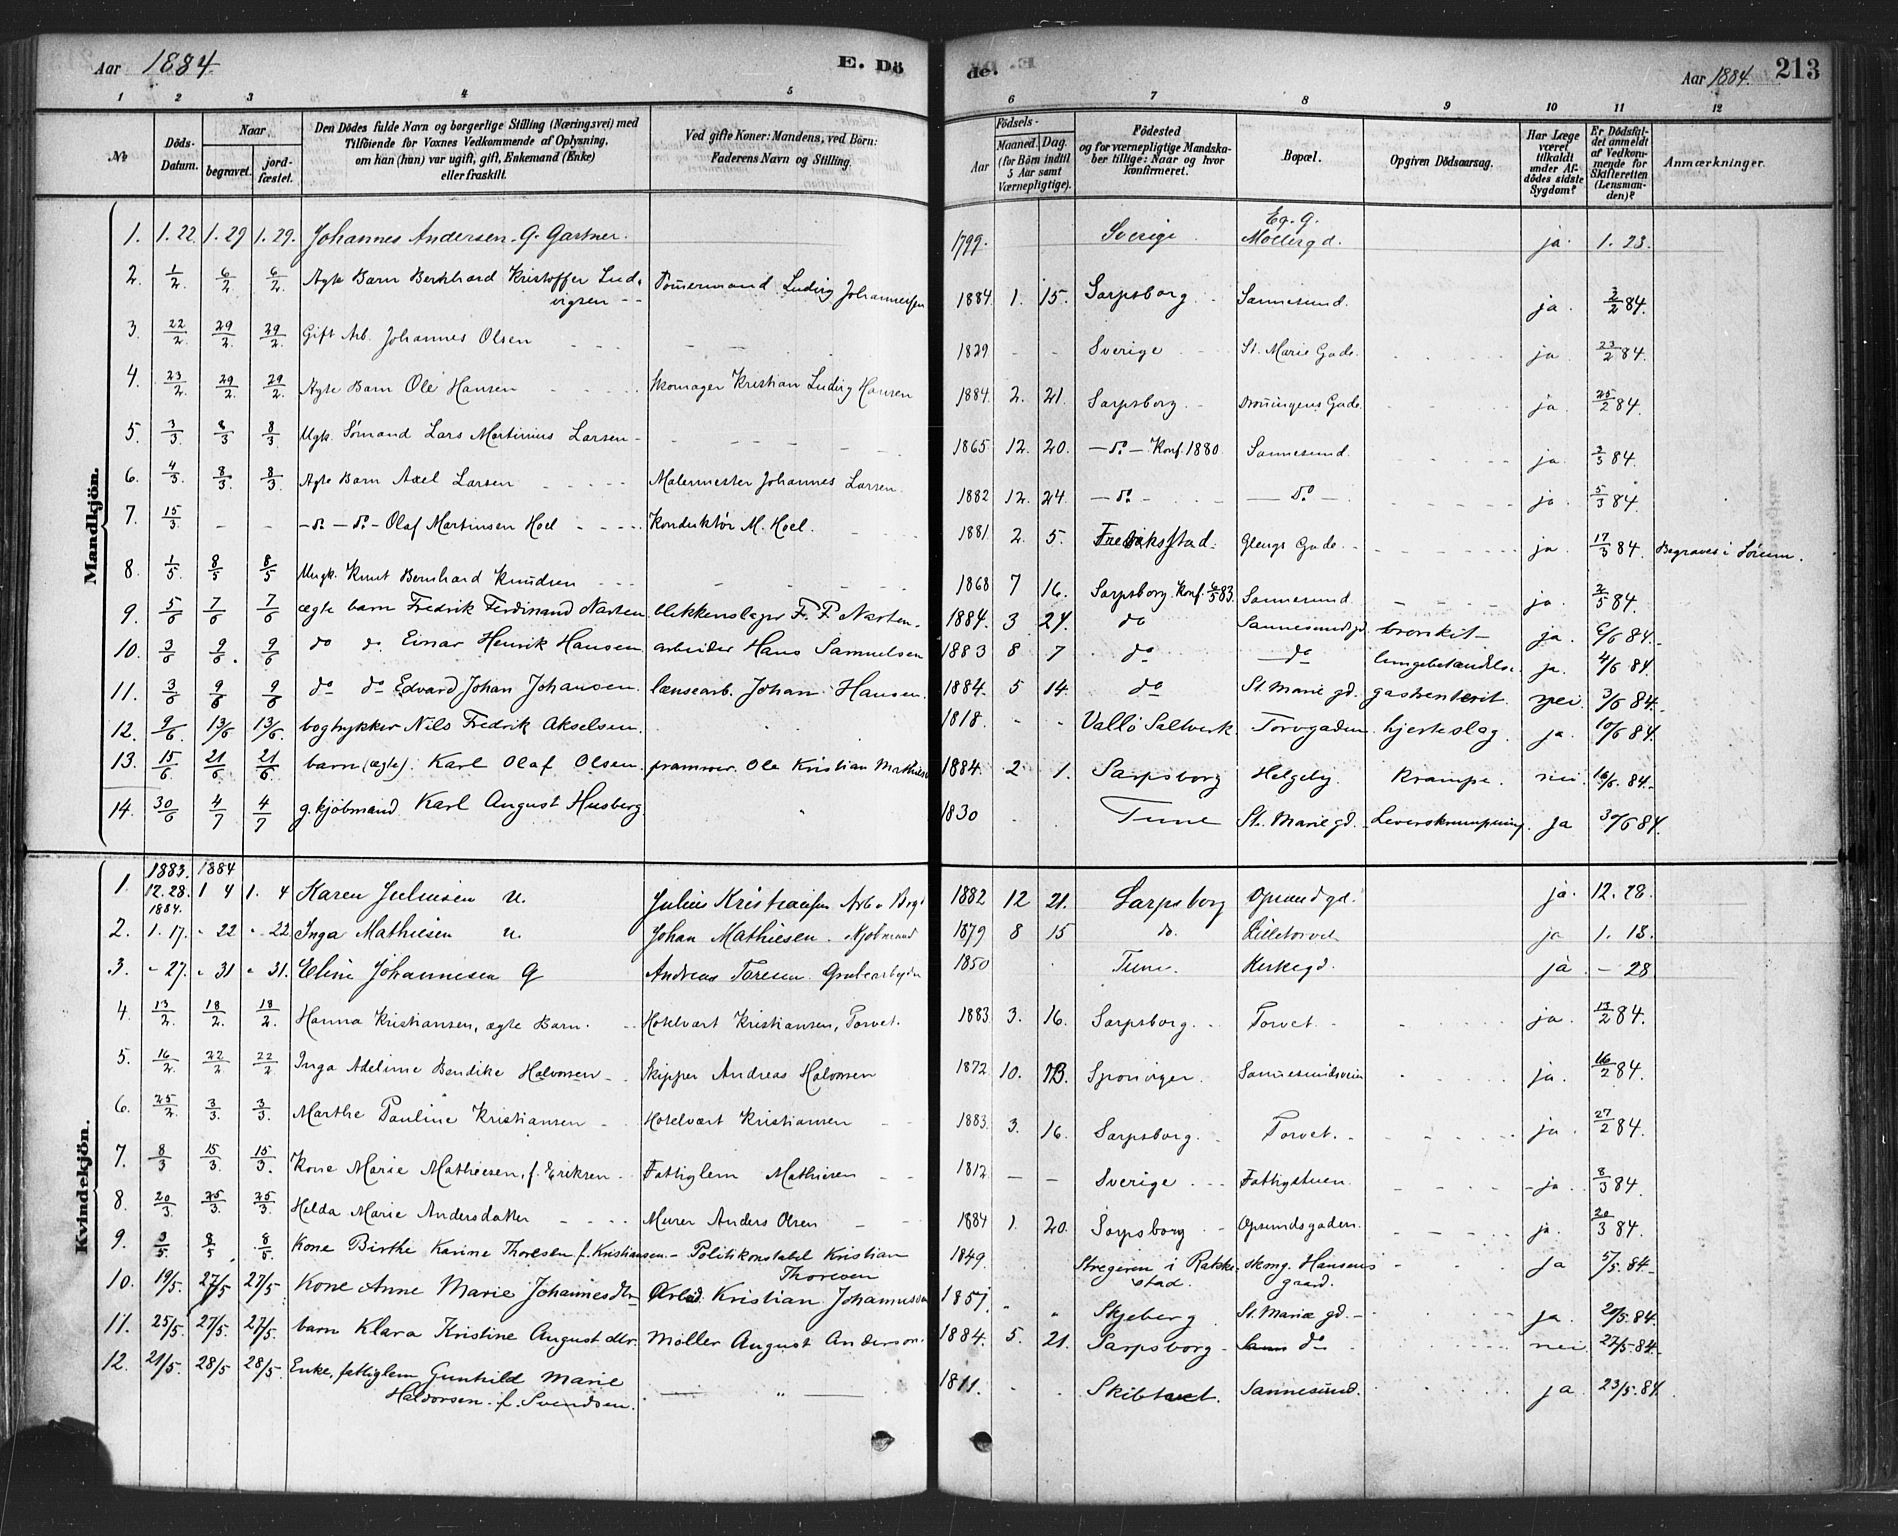 Aar 1884. E. Dö de. Aar 1884. 213
1 2 3 4 5 6 7 8 9 10 11 12
No
Döds-Datum.
Naar
begravet.
jord-fæstet.
Den Dödes fulde Navn og borgerlige Stilling (Næringsvei) med
Tilföiende for Voxnes Vedkommende af Oplysning,
om han (hun) var ugift, gift, Enkemand (Enke)
eller fraskilt.
Ved gifte Koner: Mandens, ved Börn:
Faderens Navn og Stilling.
Födsels-
Aar
Maaned. Dag.
(for Börn indtil
5 Aar samt
Værnepligtige).
Födested
og for værnepligtige Mandska-
ber tillige: Naar og hvor
konfirmeret.
Bopæl.
Opgiven Dödsaarsag.
Har Læge
været
tilkaldt
under Af-
dödes sidste
Sygdom?
Er Dödsfal-
det anmeldt
af Vedkom-
mende for
Skifteretten
(Lensman-
den)?
Anmærkninger.
Mandkjön.
1. 1.22. 1.29 1.29. Johannes Andersen. G. Gartner. 1799. Sverige Møllergd. ja. 1.23.
2. 1/2 6/2 6/2 Ægte Barn Bernhard Kristoffer Ludvigsen Tømmermand Ludvig Johannesen 1884 1. 15. Sarpsborg Sannesund. ja. 3/2 84.
3. 22/2 29/2 29/2 Gift Arb. Johannes Olsen 1829 Sverige St. Marie Gade. ja 23/2 84.
4. 23/2 29/2 29/2 Ægte Barn Ole Hansen Skomager Kristian Ludvig Hansen 1884. 2. 21. Sarpsborg Dronningens Gade. ja. 25/2 84.
5. 3/3 8/3 8/3 Ugk. Sømand Lars Martinius Larsen 1865 12. 20. - do - Konf. 1880 Sannesund. ja. 3/3 84.
6. 4/3 8/3 8/3 Ægte Barn Axel Larsen Malermester Johannes Larsen. 1882 12. 24. - do - - do - ja. 5/3 84.
7. 15/3 - - - do - do - Olaf Martinsen Hoel Konduktør M. Hoel. 1881 2. 5. Fredriksstad. Glengs Gade. ja. 17/3 84. Begraves i Sørum.
8. 1/5 8/5 8/5 Ungk. Knut Bernhard Knudsen 1868 7 16. Sarpsborg. Konf. 6/5 83. Sannesund. ja. 2/5 84.
9. 5/6 7/6 7/6 ægte barn Fredrik Ferdinand Narten blikkenslager F. F. Narten. 1884. 3 27. do Sannesundsgd. bronkit ja. 6/6 84.
10. 3/6 9/6 9/6 do do Einar Henrik Hansen arbeider Hans Samuelsen 1883 8 7 do do lungebetændelse ja. 4/6 84.
11. 3/6 9/6 9/6 do do Edvard Johan Johansen. lænsearb. Johan Hansen. 1884. 5 14. do St. Marie gd. gastrenterit. nei. 3/6 84.
12. 9/6 13/6 13/6 bogtrykker Nils Fredrik Akselsen. 1818. Vallö Saltverk Torvgaden hjerteslag. ja. 10/6 84.
13. 15/6 21/6 21/6 barn (ægte). Karl Olaf Olsen. Ole Kristian Mathiesen 1884. 2 1. Sarpsborg Helgeby. Krampe. nei. 16/6. 84.
14. 30/6 4/7 4/7 g. kjøbmand Karl August Husberg. 1830 Tune St. Marie gd. Leverskrumpning. ja 30/6 84.
Kvindekjön.
1. 1883. 12.28. 1884 1 4 1. 4 Karen Juliusen u. Julius Kristiansen Arb. 1882 12 21. Sarpsborg Opsundgd. ja. 12.28.
2. 1884. 1.17. - 22 - 22 Inga Mathiesen u. Johan Mathiesen. Kjøbmand 1879 8 15 do. Lilletorvet ja 1. 18.
3. - 27. - 31 - 31. Eline Johannesen G Andreas Toresen. Grubearbeyder 1850 Tune. Kirkegd. ja - 28
4. 13/2 18/2 18/2 Hanna Kristiansen, ægte Barn. Hotelvært Kristiansen, Torvet. 1883 3. 16. Sarpsborg. Torvet. ja. 13/2 84.
5. 16/2 22/2 22/2 Inga Adeline Bendike Halvorsen Skipper Andreas Halvorsen 1872 10. 13. Sponviger. Sannesundsveien ja. 16/2 84.
6. 25/2 3/3 3/3 Marthe Pauline Kristiansen Hotelvært Kristiansen 1883. 3. 16. Sarpsborg. Torvet. ja. 27/2 84.
7. 8/3 15/3 15/3. Kone Marie Mathiesen, f. Eriksen Fattiglem Mathiesen 1812 - - Sverige Fattigstuen. ja. 8/3 84.
8. 20/3 25/3 25/3 Helda Marie Andersdatter Murer Anders Olsen 1884 1. 20. Sarpsborg Opsundsgaden. ja. 20/3 84.
9. 3/5. 8/5 8/5 Kone Birthe Karine Thoresen f. Kristiansen. - Politikonstabel Kristian Thoresen 1849. Stregeren i Rakkestad. skomg. Hansens gaard. ja 5/5. 84.
10. 19/5. 27/5 27/5. Kone Anne Marie Johannesdtr Arbeid. Kristian Johannesen 1857. Skjeberg St. Marie gd. ja. 20/5. 84.
11. 25/5. 27/5. 27/5. barn Klara Kristine Augustdtr. Møller August Anderson. 1884. 5. 21. Sarpsborg do nei 27/5. 84.
12. 21/5. 28/5 28/5 Enke, fattiglem Gunhild Marie Haldorsen f. Svendsen. 1811. Skibtvet. Sannesund. ja 23/5. 84.